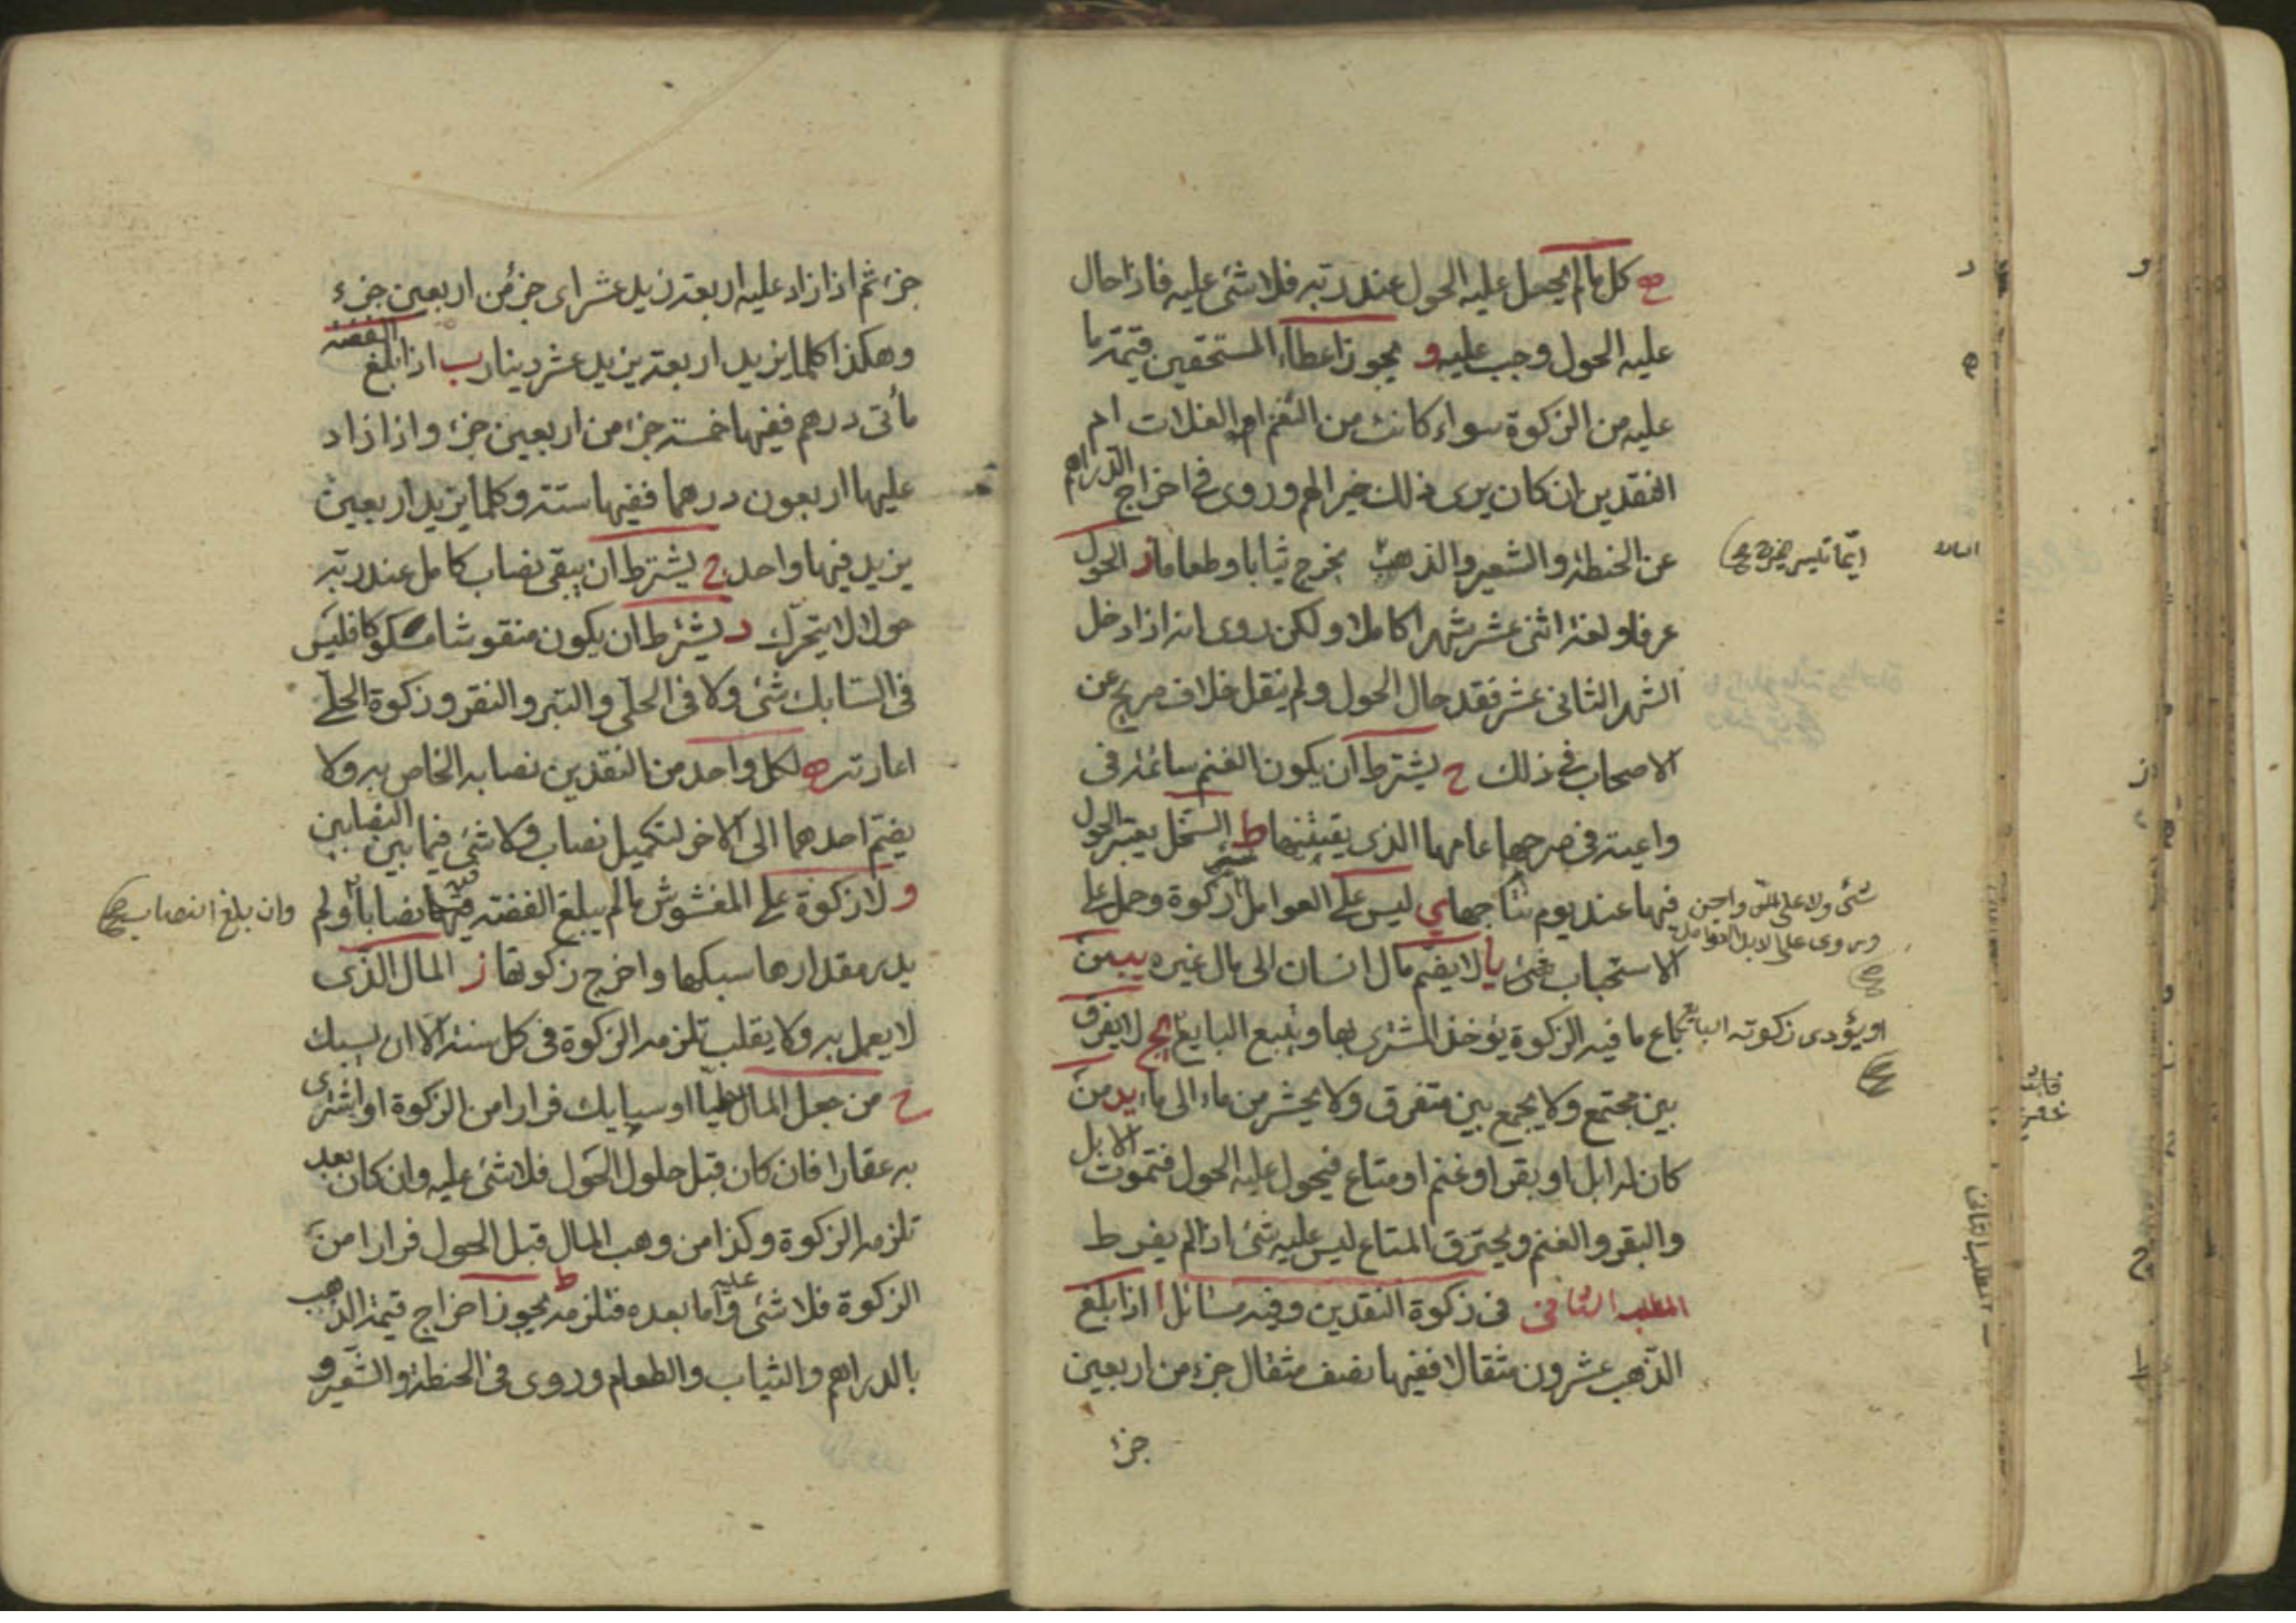 ه كل ما لم يحل عليه الحول عند ربه فلا شئ عليه فاذا حال
عليه الحول وجب عليه و يجوز اعطاء المستحقين قيمة ما
عليه من الزكوة سواء كانت من النعم او الغلات ام
النقدين ان كان يرى ذلك خيرا لهم وروى في اخراج الدراهم
عن الحنطة والشعير والذهب يخرج ثيابا وطعاما ز الحول
ايما تيسر
عرفا ولغة اثنى عشر شهرا كاملا ولكن روى انه اذا دخل
الشهر الثانى عشر فقد حال الحول ولم ينقل خلاف صريح عن
الاصحاب في ذلك ح يشترط ان يكون الغنم سائمة فى
راعية فى مرجها عامها الذى يقتنيها ط السخل يعتبر الحول
فيها عند يوم نتاجها ى ليس على العوامل زكوة وحمل على
شئ ولا على
وروى على الابل العوامل
الاستحباب شئ يا لا يضم مال انسان الى مال غيره يب من
باع ما فيه الزكوة يؤخذ المشترى بها ويتبع البايع يج لا يفرق
او يؤدى زكوته البايع
بين مجتمع ولا يجمع بين متفرق ولا يحشر من ماء الى ماء يد من
كان له ابل او بقر او غنم او متاع فيحول عليه الحول فتموت الابل
والبقر والغنم ويحترق المتاع ليس عليه شئ اذا لم يفرط
المطلب الثانى فى زكوة النقدين وفيه مسائل ا اذا بلغ
الذهب عشرون مثقالا ففيها نصف مثقال جزء من اربعين
جزء
جزء ثم اذا زاد عليه اربعة زيد عشر اى جزء من اربعين جزء
وهكذا كلما يزيد اربعة يزيد عشر دينار ب اذا بلغ الفضة
مأتى درهم ففيها خمسة جزء من اربعين جزء واذا زاد
عليها اربعون درهما ففيها ستة وكلما يزيد اربعين
يزيد فيها واحد ج يشترط ان يبقى نصاب كامل عند ربه
حولا لا يتحرك د يشترط ان يكون منقوشا مسكوكا فليس
فى السبابك شئ ولا فى الحلى والتبر والنقر وزكوة الحلى
اعارته ه لكل واحد من النقدين نصابه الخاص به ولا
يضم احدهما الى الاخر لتكميل نصاب ولا شئ فيما بين النصابين
و لا زكوة على المغشوش ما لم يبلغ الفضة فيها نصابا ولو لم
وان بلغ النصاب
يدر مقدارها سبكها واخرج زكوتها ز المال الذى
لا يعمل به ولا يقلب تلزمه الزكوة فى كل سنة الا ان يسبك
ح من جعل المال حليا او سبايك فرارا من الزكوة او اشترى
به عقارا فان كان قبل حلول الحول فلا شئ عليه وان كان بعد
تلزمه الزكوة وكذا من وهب المال قبل الحول فرارا من
الزكوة فلا شئ عليه واما بعده فتلزمه ط يجوز اخراج قيمة الذهب
بالدراهم والثياب والطعام وروى فى الحنطة والشعير و